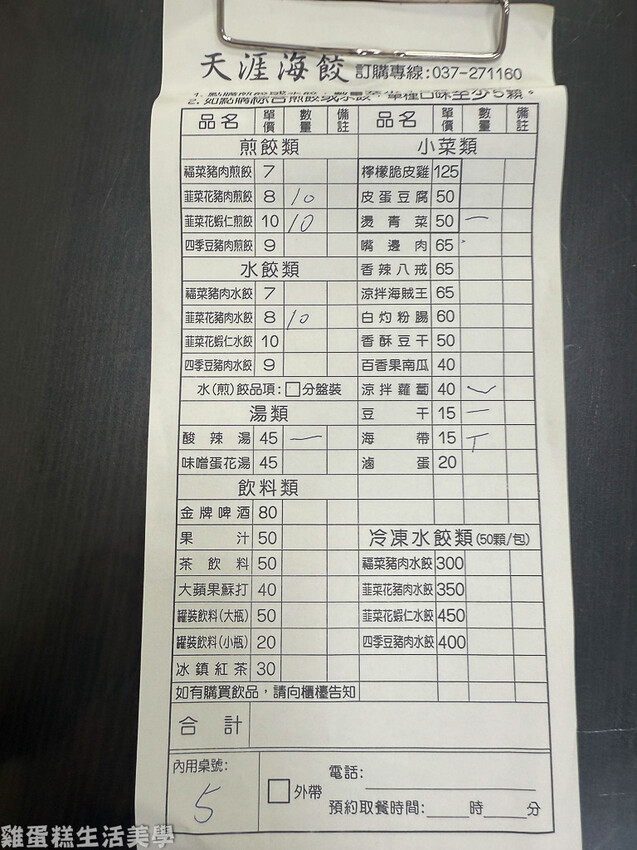 天涯海餃 訂購專線:037-271160
2. 如點購綜合煎餃或水餃，單種口味至少5顆。
品名 單價 數量 備註 品名 單價 數量 備註
煎餃類 小菜類
福菜豬肉煎餃 7 檸檬脆皮雞 125
韮菜花豬肉煎餃 8 10 皮蛋豆腐 50
韮菜花蝦仁煎餃 10 10 燙青菜 50 一
四季豆豬肉煎餃 9 嘴邊肉 65
水餃類 香辣八戒 65
福菜豬肉水餃 7 涼拌海賊王 65
韮菜花豬肉水餃 8 10 白灼粉腸 60
韮菜花蝦仁水餃 10 香酥豆干 50
四季豆豬肉水餃 9 百香果南瓜 40
水(煎)餃品項:□分盤裝 涼拌蘿蔔 40
湯類 豆干 15 一
酸辣湯 45 一 海帶 15
味噌蛋花湯 45 滷蛋 20
飲料類
金牌啤酒 80
果汁 50 冷凍水餃類(50顆/包)
茶飲料 50 福菜豬肉水餃 300
大蘋果蘇打 40 韮菜花豬肉水餃 350
罐裝飲料(大瓶) 50 韮菜花蝦仁水餃 450
罐裝飲料(小瓶) 20 四季豆豬肉水餃 400
冰鎮紅茶 30
如有購買飲品，請向櫃檯告知
合計
內用桌號: 5 □外帶 電話:
預約取餐時間: 時 分
雞蛋糕生活美學